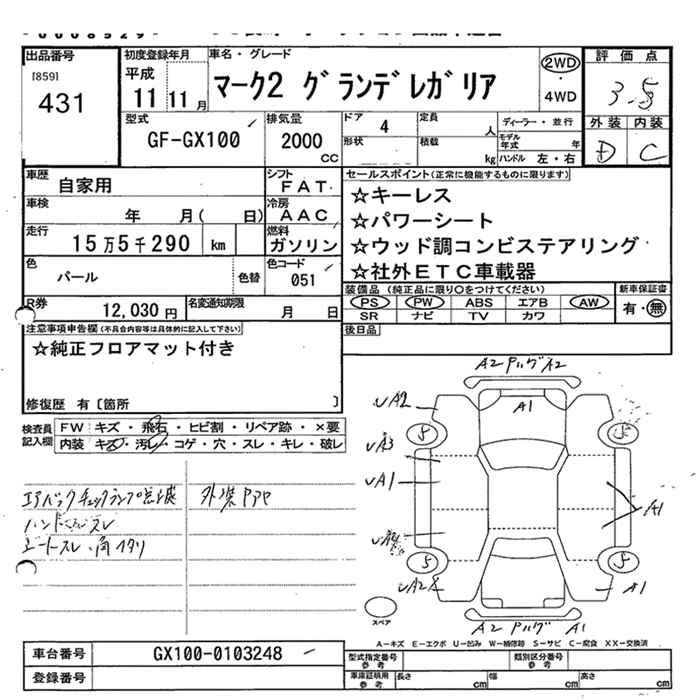 出品番号
[859]
431
初度登録年月
平成
11 11 月
車名・グレード
マーク2 グランデレガリア
2WD
・
4WD
評価点
3.5
外装 内装
D C
型式
GF-GX100
排気量
2000
CC
ドア 4
形状
定員 人
積載 kg
ディーラー・並行
モデル年式 年
ハンドル 左・右
車歴
自家用
シフト
FAT
車検
年 月( 日)
冷房
AAC
走行
15万5千290 km
燃料
ガソリン
色
パール
色替
色コード
051
R券
12,030 円
名変通知期限
月 日
セールスポイント(正常に機能するものに限ります)
☆キーレス
☆パワーシート
☆ウッド調コンビステアリング
☆社外ETC車載器
装備品 (純正品に限り○をつけてください)
新車保証書
PS PW ABS エアB AW
SR ナビ TV カワ
有・無
後日品
注意事項申告欄(不具合内容等は具体的に記入して下さい)
☆純正フロアマット付き
修復歴 有〔箇所 〕
検査員記入欄
FW キズ・飛石・ヒビ割・リペア跡・×要
内装 キズ・汚レ・コゲ・穴・スレ・キレ・破レ
エアバックチェックランプ点滅
外装
ハンドル スレ
シートスレ・角
A2 A2
A1
A2
A3
A1
A1
A2
A1
A2 A1
5
5
5
5
スペア
A−キズ E−エクボ U−凹み W−補修跡 S−サビ C−腐食 XX−交換済
車台番号
GX100-0103248
登録番号
型式指定番号
参考
類別区分番号
参考
車庫証明用
参考
長さ cm
幅 cm
高さ cm